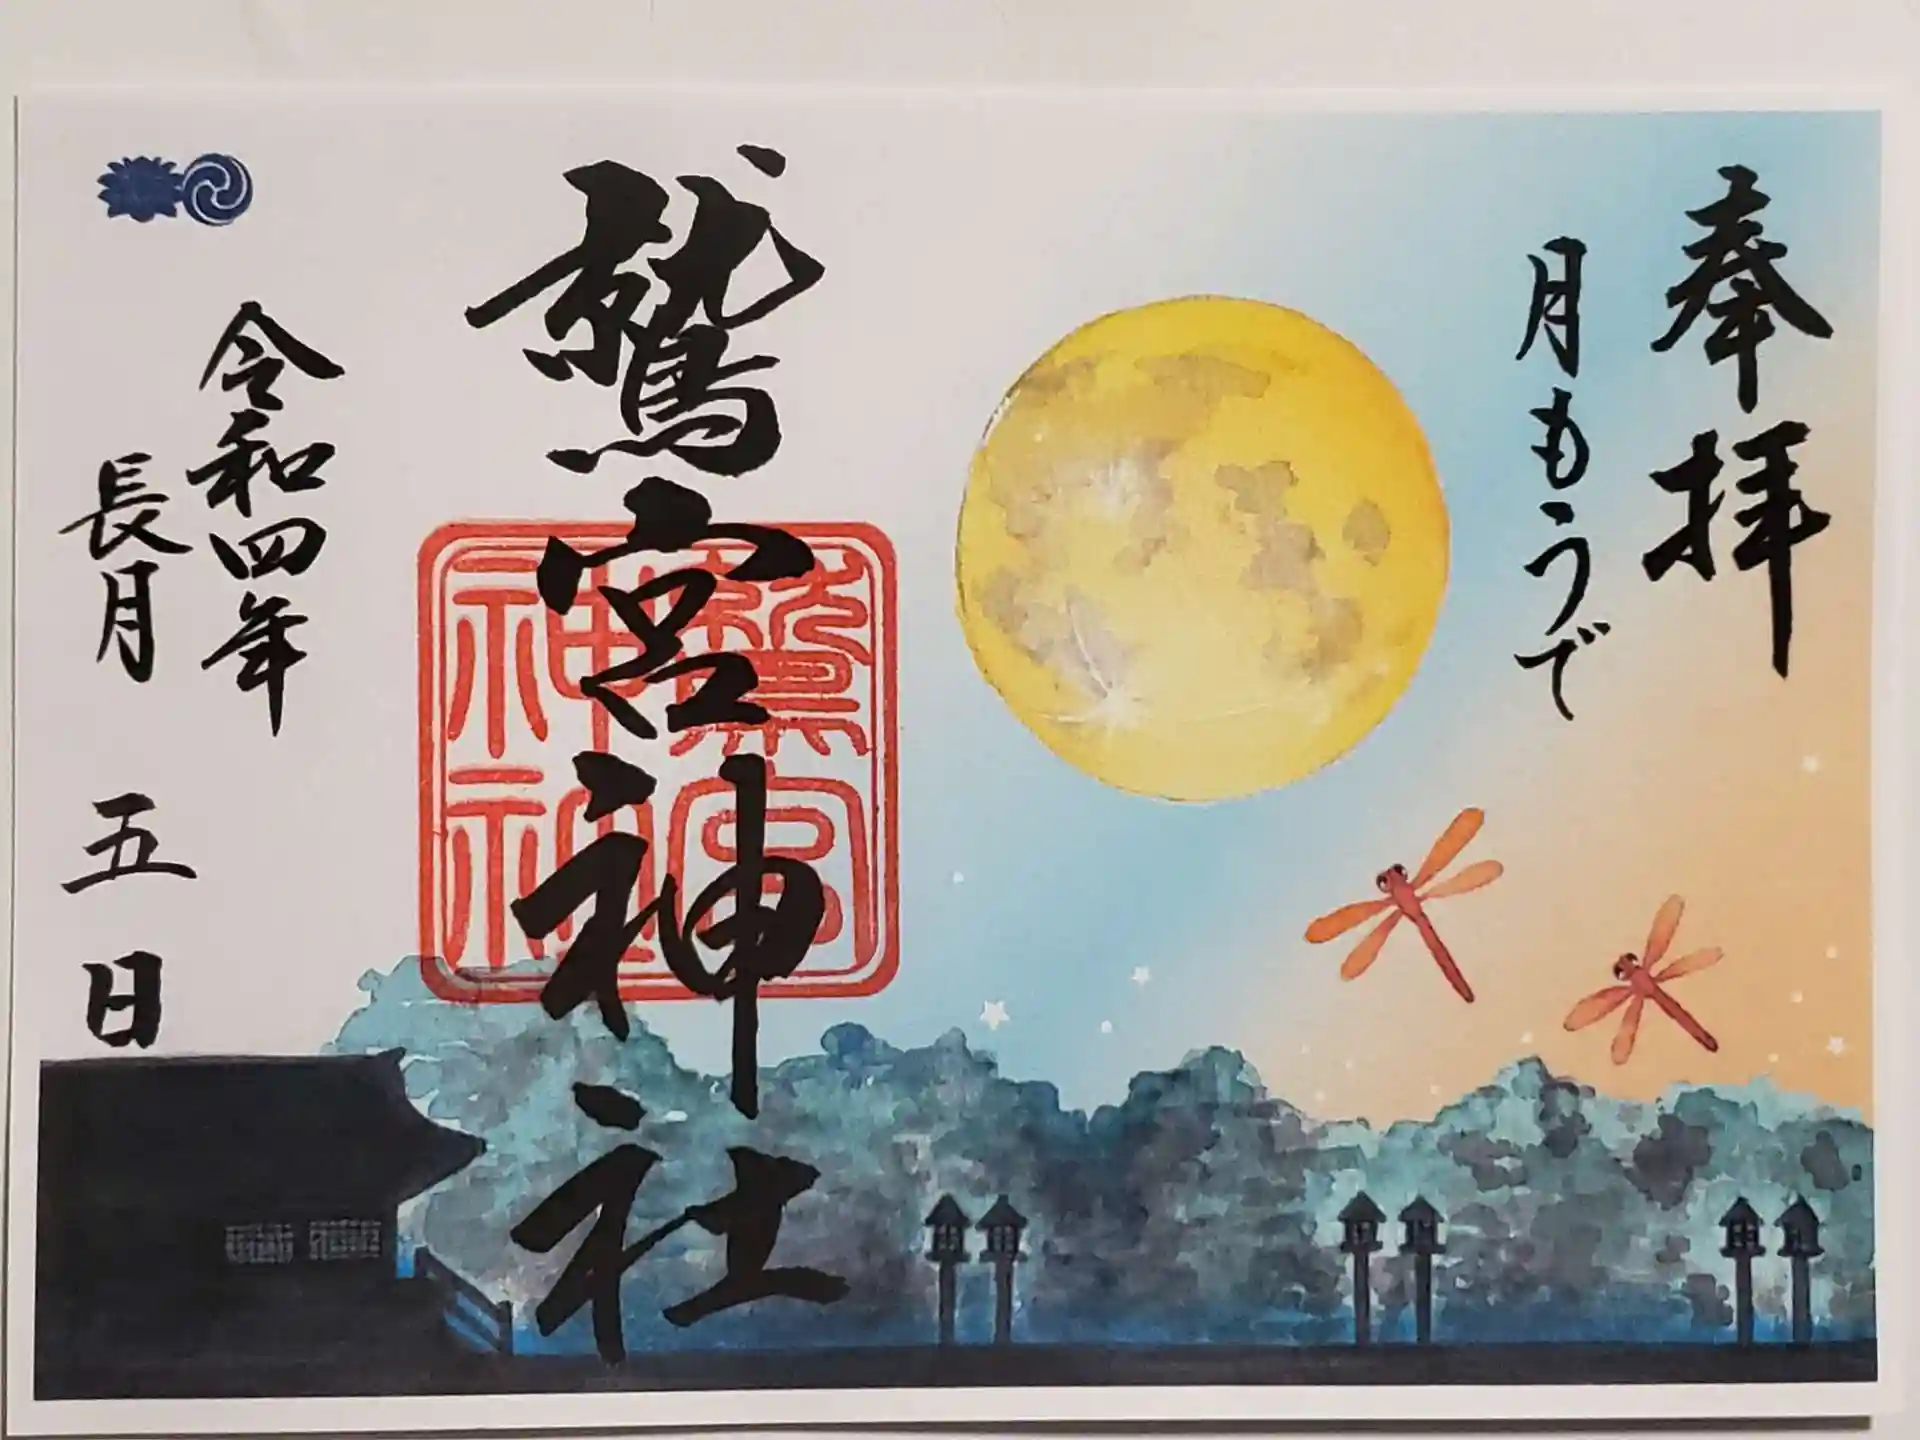 奉拝
月もうで
鷲宮神社
鷲宮
神社
令和四年
長月 五日